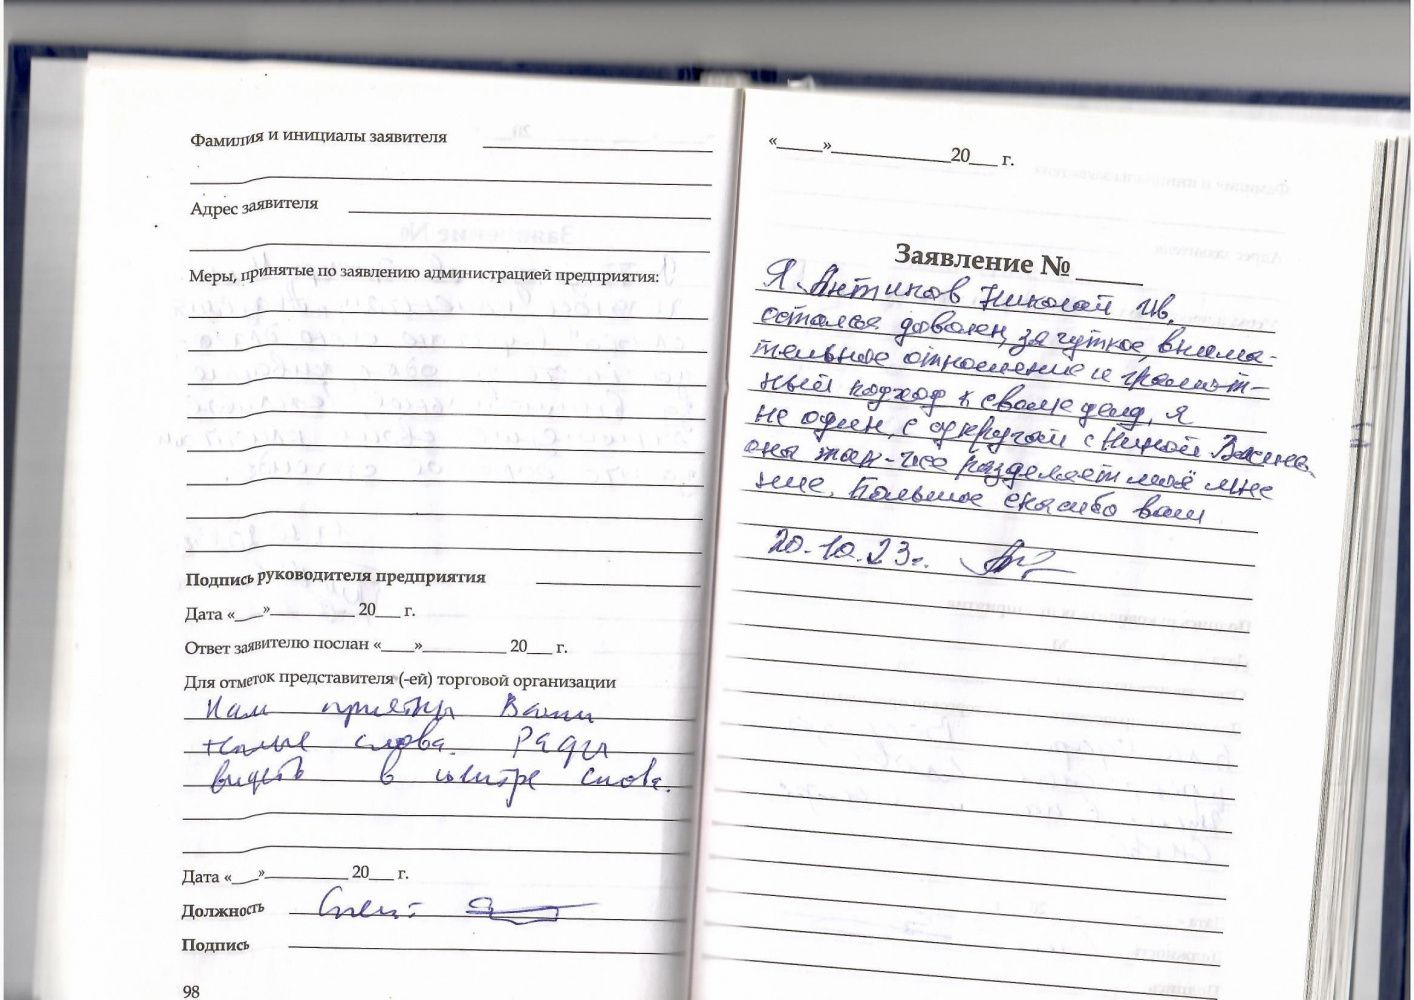 Фамилия и инициалы заявителя
Адрес заявителя
Меры, принятые по заявлению администрацией предприятия:
Подпись руководителя предприятия
Дата «___»__________ 20___ г.
Ответ заявителю послан «____»__________ 20___ г.
Для отметок представителя (-ей) торговой организации
Нам приятны Ваши
тёплые слова. Рады
видеть в центре снова.
Дата «___»__________ 20___ г.
Должность
Подпись
98
«_____»_____________20___ г.
Заявление № _____
Я Антипов Николай Ив.
остался доволен, за чуткое, внима-
тельное отношение и грамот-
ный подход к своему делу, я
не один, с супругой с Ниной
она так-же разделяет моё мне
ние. Большое спасибо вам
20.10.23г.